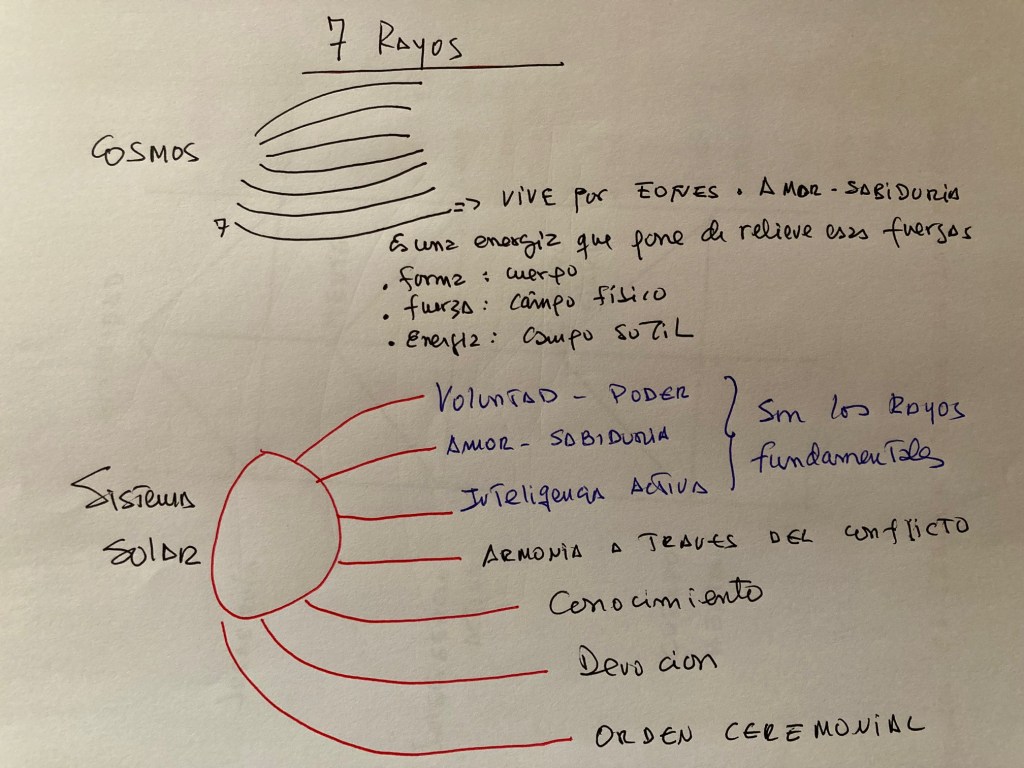 7 Rayos
COSMOS
7
=> VIVE por EONES. AMOR-SABIDURIA
Es una energia que pone de relieve esas fuerzas
. forma : cuerpo
. fuerza : campo físico
. Energia : campo SUTIL
VOLUNTAD - PODER
AMOR - SABIDURIA
Inteligencia ACTIVA
Son los RAYOS
fundamentales
Sistema
SOLAR
ARMONIA A TRAVES DEL conflicto
Conocimiento
Devocion
ORDEN CEREMONIAL